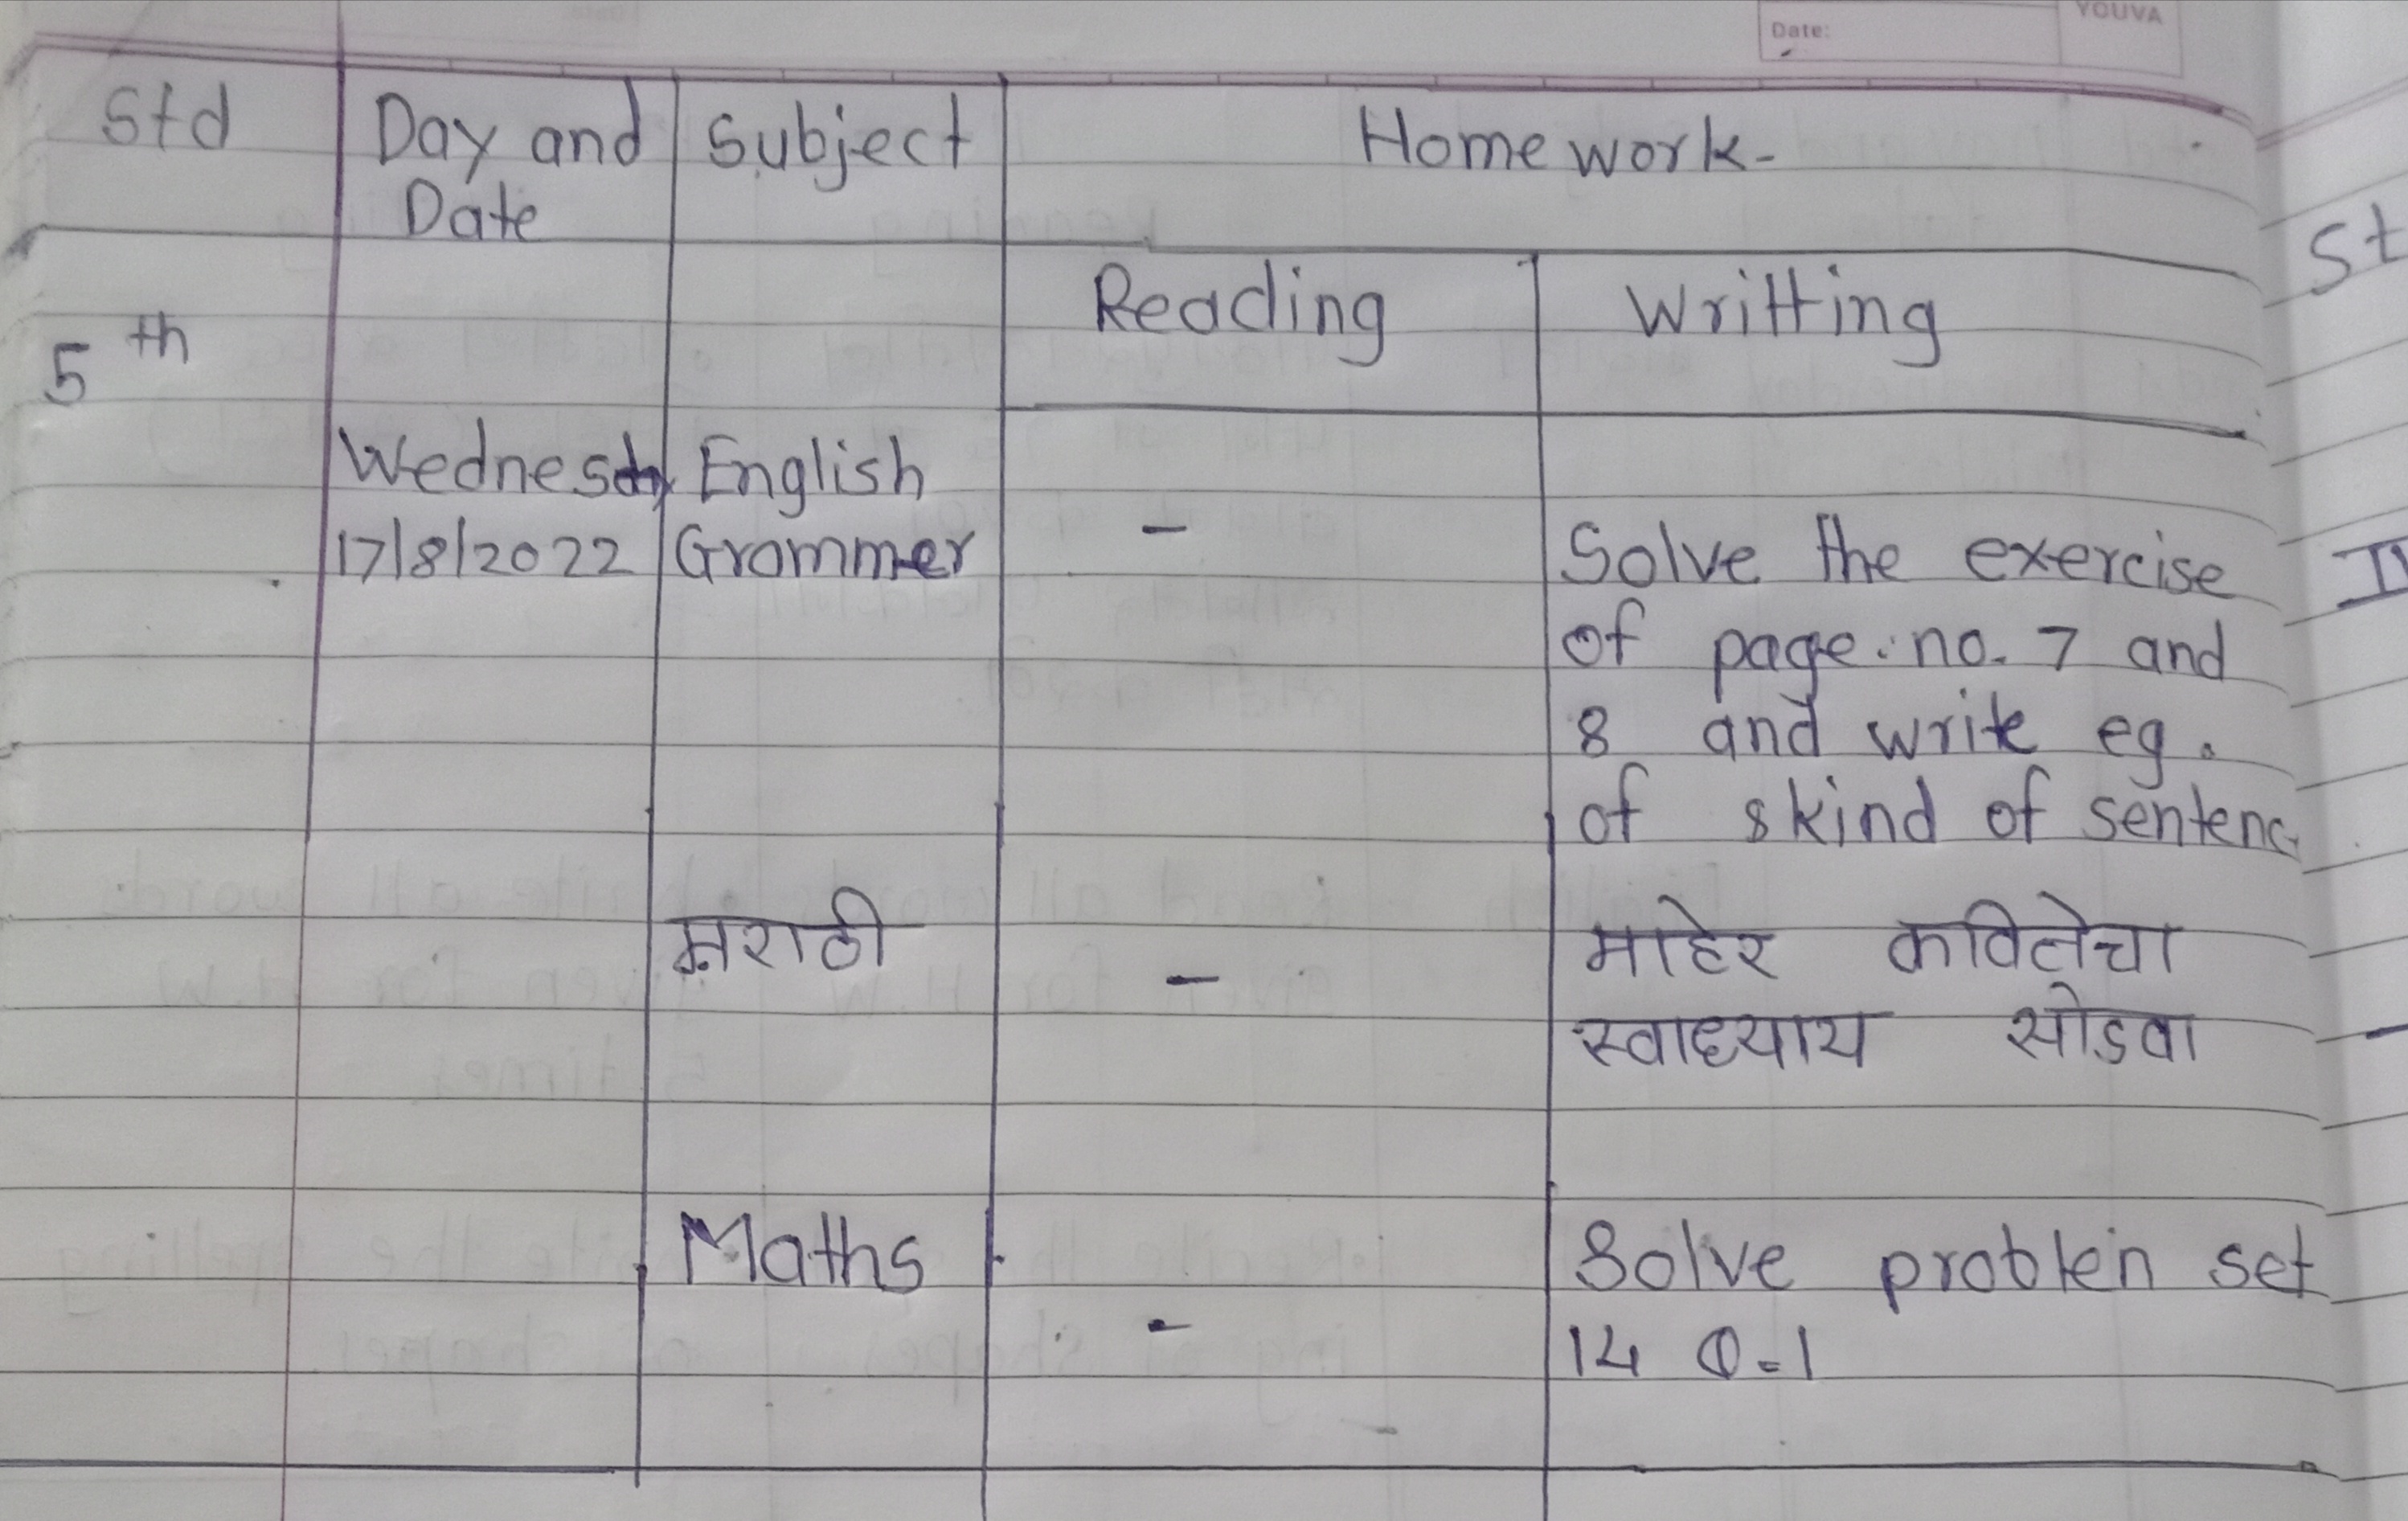 YOUVA
Date:
Std Day and Subject Home work-
Date
Reading Writting
5th
Wednesday English
17/8/2022 Grammer - Solve the exercise
of page. no. 7 and
8 and write eg.
of skind of sentenc
मराठी - माहेर कवितेचा
स्वाध्याय सोडवा
Maths Solve problem set
- 14 Q-1
St
IV